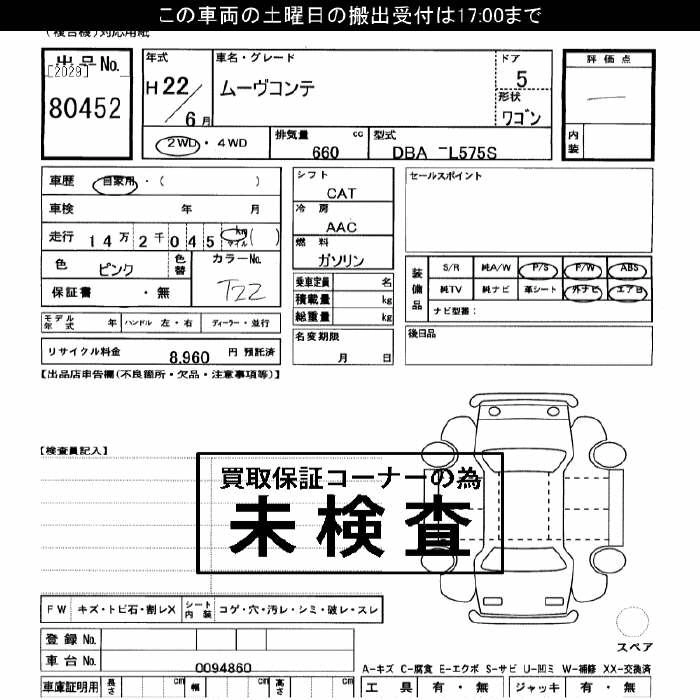 この車両の土曜日の搬出受付は17:00まで
(複合機)対応用紙
出品No. 年式 車名・グレード ドア 評価点
[2029] H22/6月 ムーヴコンテ 5
80452 形状 ワゴン
2WD・4WD 排気量 cc 660 型式 DBA-L575S 内装
車歴 自家用・( ) シフト CAT セールスポイント
車検 年 月 冷房 AAC
走行 14万2千045 km マイル ( ) 燃料 ガソリン
色 ピンク 色替 カラーNo. T22 装備品 S/R 純A/W P/S P/W ABS
保証書 ・無 乗車定員 名 純TV 純ナビ 革シート 外ナビ エアB
積載量 kg ナビ型番:
モデル年式 年 ハンドル 左・右 ディーラー・並行 総重量 kg 後日品
リサイクル料金 8,960 円 預託済 名変期限 月 日
【出品店申告欄(不良箇所・欠品・注意事項等)】
【検査員記入】
買取保証コーナーの為
未検査
FW キズ・トビ石・割レX シート内装 コゲ・穴・汚レ・シミ・破レ・スレ
登録No.
スペア
車台No. 0094860
A-キズ C-腐食 E-エクボ S-サビ U-凹ミ W-補修 XX-交換済
車庫証明用 長さ cm 幅 cm 高さ cm 工具 有・無 ジャッキ 有・無